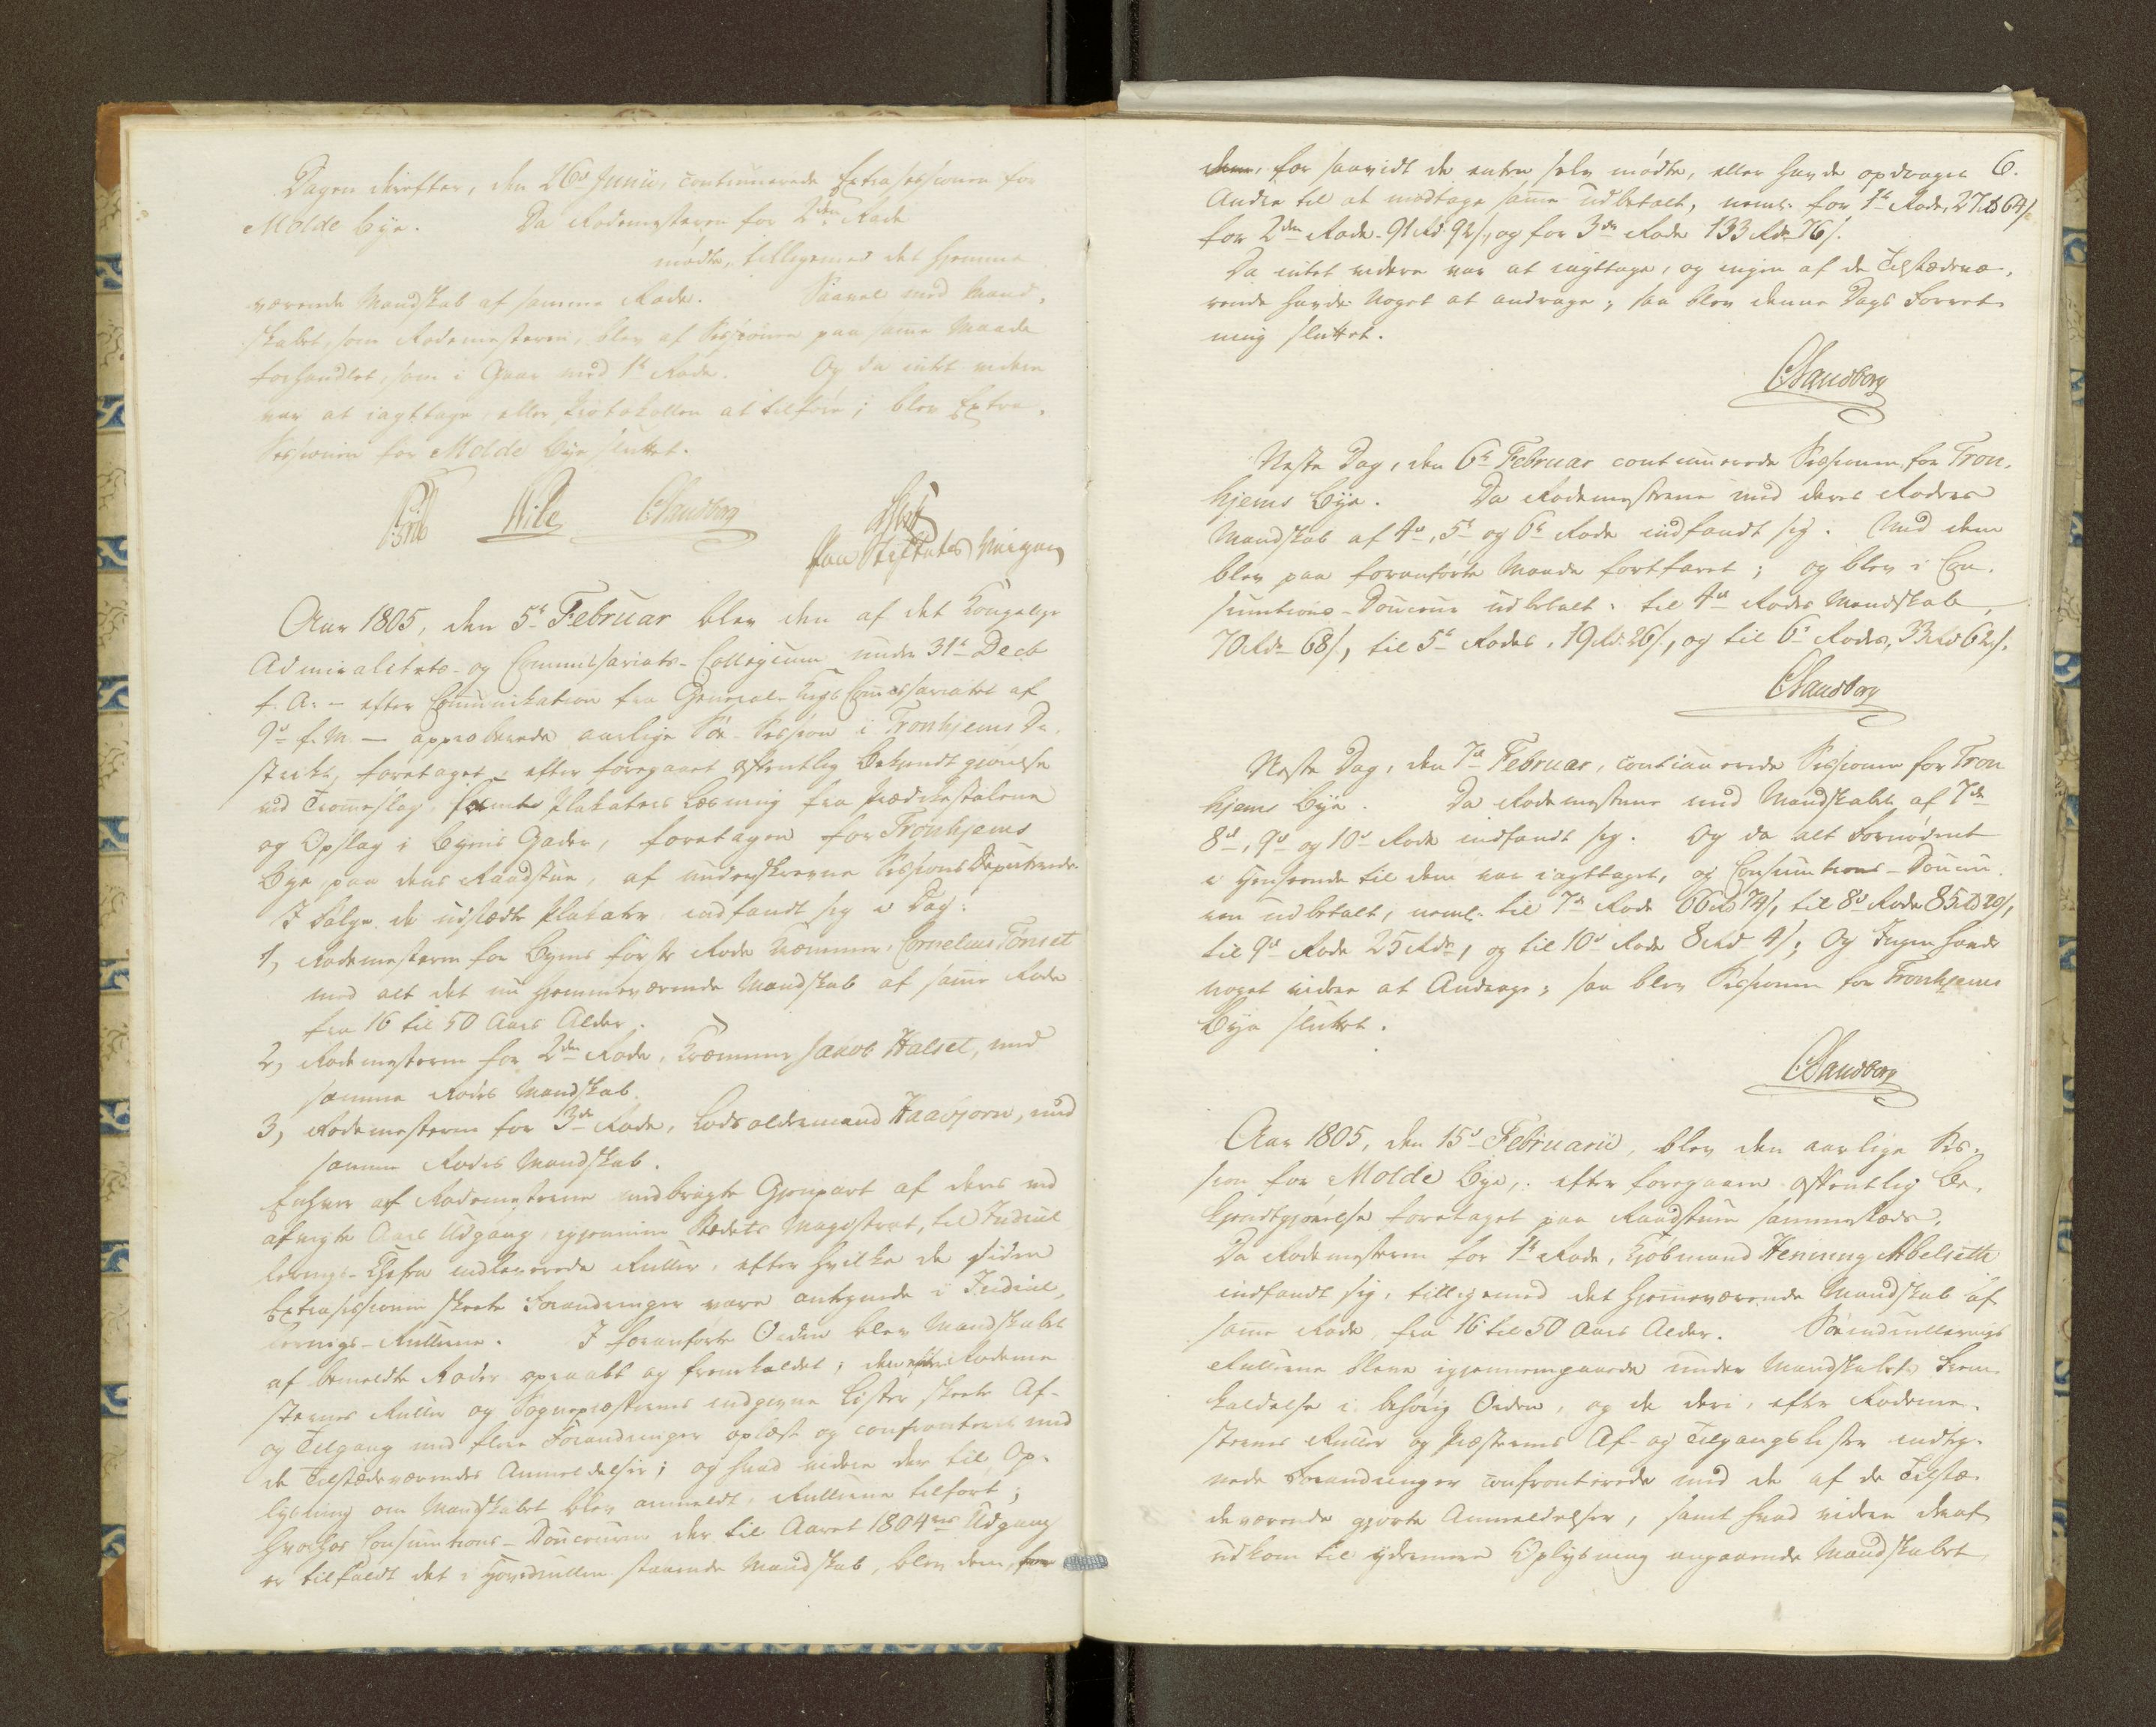 Dagen derefter, den 26de Junii, continuerede Extrasessionen for
Molde Bye. Da Rodemesteren for 2den Rode
mødte, tilligemed det hjemme
værende Mandskab af samme Rode. Saavel med Mand-
skabet, som Rodemesteren, blev af Sessionen paa same Maade
forhandlet, som i Gaar med 1te Rode. Og da intet videre
var at iagttage, eller Protokollen at tilføre; blev Extra-
Sessionen for Molde Bye sluttet.
Wibe CSandberg
paa Stiftets Veigne
Aar 1805, den 5te Februar blev den af det Kongelige
Admiralitets- og Commissariats-Collegium under 31te Decbr
f. A. - efter Communikation fra General-Krigs Comissariatet af
9de f. M. - approberede aarlige Søe-Session i Tronhiems Di-
strikt, foretaget, efter foregaaet offentlig Bekiendtgiørelse
ved Tromeslag, samt Plakaters Læsning fra Prædikestolene
og Opslag i Byens Gader, foretagen for Tronhjems
Bye, paa dens Raadstue, af underskrevne Sessions Deputerede.
I Følge de udstædte Plakater indfandt sig i Dag:
1, Rodemesteren for Byens første Rode Kræmmer Cornelius Tønset
med alt det nu hjemmeværende Mandskab af same Rode
fra 16 til 50 Aars Alder.
2, Rodemesteren for 2den Rode, Kræmmer Jakob Halset, med
samme Rodes Mandskab.
3, Rodemesteren for 3de Rode, Lodsoldermand Haabjørn, med
samme Rodes Mandskab.
Enhver af Rodemesterne medbragte Gjenpart af deres ved
afvigte Aars Udgang, igjennem Stedets Magistrat, til Indrul-
lerings-Chefen indleverede Ruller, efter hvilke de siden
Extrasessionen skeete Forandringer vare antegnede i Indrul-
lerings-Rullerne. I foranførte Orden blev Mandskabet
af bemeldte Roder opraabt og fremkaldet; derefter Rodeme-
sternes Ruller og Sognepræsternes indgivne Lister skeete Af-
og Tilgang med flere Forandringer oplæst og confronteret med
de Tilstædeværendes Anmeldelser; og hvad videre der til Op-
lysning om Mandskabet blev anmeldt, Rullerne tilført;
hvorhos Consumtions-Douceuren der til Aaret 1804res Udgang
er tilfaldt det i Hovedrullen staaende Mandskab, blev dem, for
6.
dem, for saavidt de enten selv mødte, eller havde opdraget
Andre til at modtage samme udbetalt, neml. for 1te Rode, 27 Rd 64 s.
for 2den Rode. 91 Rd. 92 s., og for 3de Rode 133 Rdr 76 s.
Da intet videre var at iagttage, og ingen af de Tilstædevæ-
rende havde Noget at andrage; saa blev denne Dags Forret-
ning sluttet.
CSandberg
Næste Dag, den 6te Februar continuerede Sessionen for Tron-
hjems Bye. Da Rodemestrene med deres Roders
Mandskab af 4de, 5te og 6te Rode indfandt sig. Med dem
blev paa foranførte Maade fortfaret; og blev i Con-
sumtions-Douceur udbetalt: til 4de Rodes Mandskab,
70 Rdr 68 s., til 5te Rodes, 19 Rd. 26 s., og til 6te Rodes, 33 Rd 62 s.
CSandberg
Næste Dag, den 7de Februar, continuerede Sessionen for Tron
hjems Bye. Da Rodemestrene med Mandskabet af 7de
8de, 9de og 10de Rode indfandt sig. Og da alt Fornødent
i Henseende til dem var iagttaget, og Consumtions-Douceu-
ren udbetalt, neml. til 7de Rode 66 Rd 74 s, til 8de Rode 85 Rd 20 s,
til 9de Rode 25 Rdr, og til 10de Rode 8 Rd 4 s; Og Ingen havde
noget videre at Andrage; saa blev Sessionen for Tronhjems
Bye sluttet.
CSandberg
Aar 1805, den 15de Februarii, blev den aarlige Ses-
sion for Molde Bye, efter foregaaen offentlig Be-
kjendtgjørelse foretaget paa Raadstuen sammestæds.
Da Rodemesteren for 1te Rode, Kjøbmand Henning Abelseth
indfandt sig, tilligemed det hjemeværende Mandskab af
same Rode, fra 16 til 50 Aars Alder. Søeindrullerings
Rullerne bleve igjennemgaaede under Mandskabets Frem-
kaldelse i behørig Orden, og de deri, efter Rodeme-
sternes Ruller og Præsternes Af- og Tilgangslister indteg-
nede Forandringer confronterede med de af de Tilstæ-
deværende gjorte Anmeldelser, samt hvad videre deraf
udkom til ydermere Oplysning angaaende Mandskabet